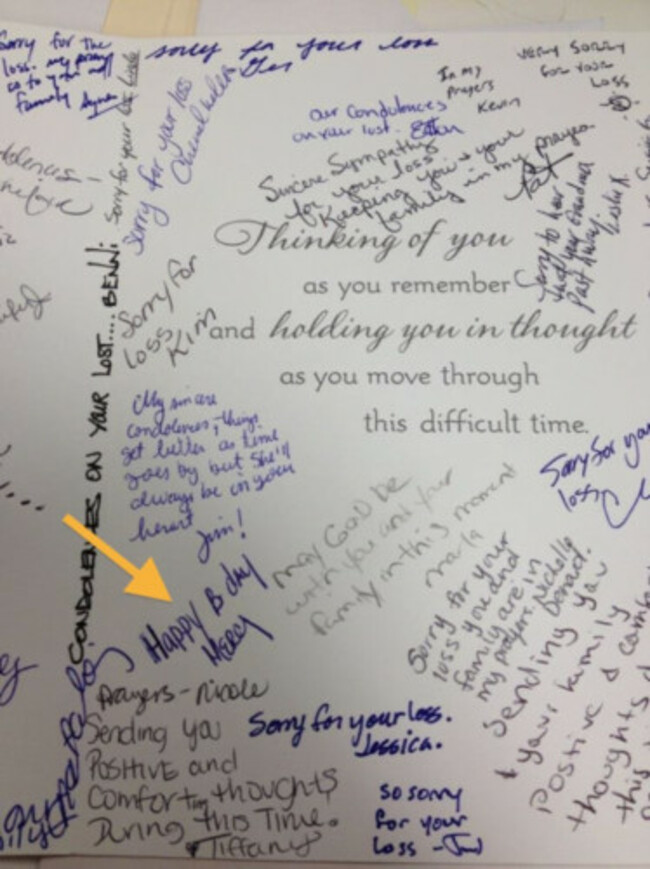 Sorry for the
loss. my prayers
go to you and
family
sorry for your loss
Sorry for your loss
Sorry for your loss
In my
prayers
Kevin
very sorry
for your
loss
our Condolences
on your lost.
Sincere Sympathy
for your loss
Keeping you & your
family in my prayers
Pat
Sorry to hear
that your Grandma
Past Away.
Leslie X
CONDOLENCES ON YOUR LOST.... BENNi
Thinking of you
as you remember
and holding you in thought
as you move through
this difficult time.
Sorry for
loss
Kim
My sincere
condolences, things
get better as time
goes by but she'll
always be in your
heart
Jim!
Sorry for your
loss
May God be
with you and your
family in this moment
Marla
Happy B day
Mercy
Sorry for your
loss you and
family are in
my prayers.
Donad.
Sending you
& your family
Positive &
thoughts
this
Prayers - Nicole
Sending you
Positive and
Comforting thoughts
During this Time.
Tiffany
Sorry for your loss.
Jessica.
so sorry
for your
loss